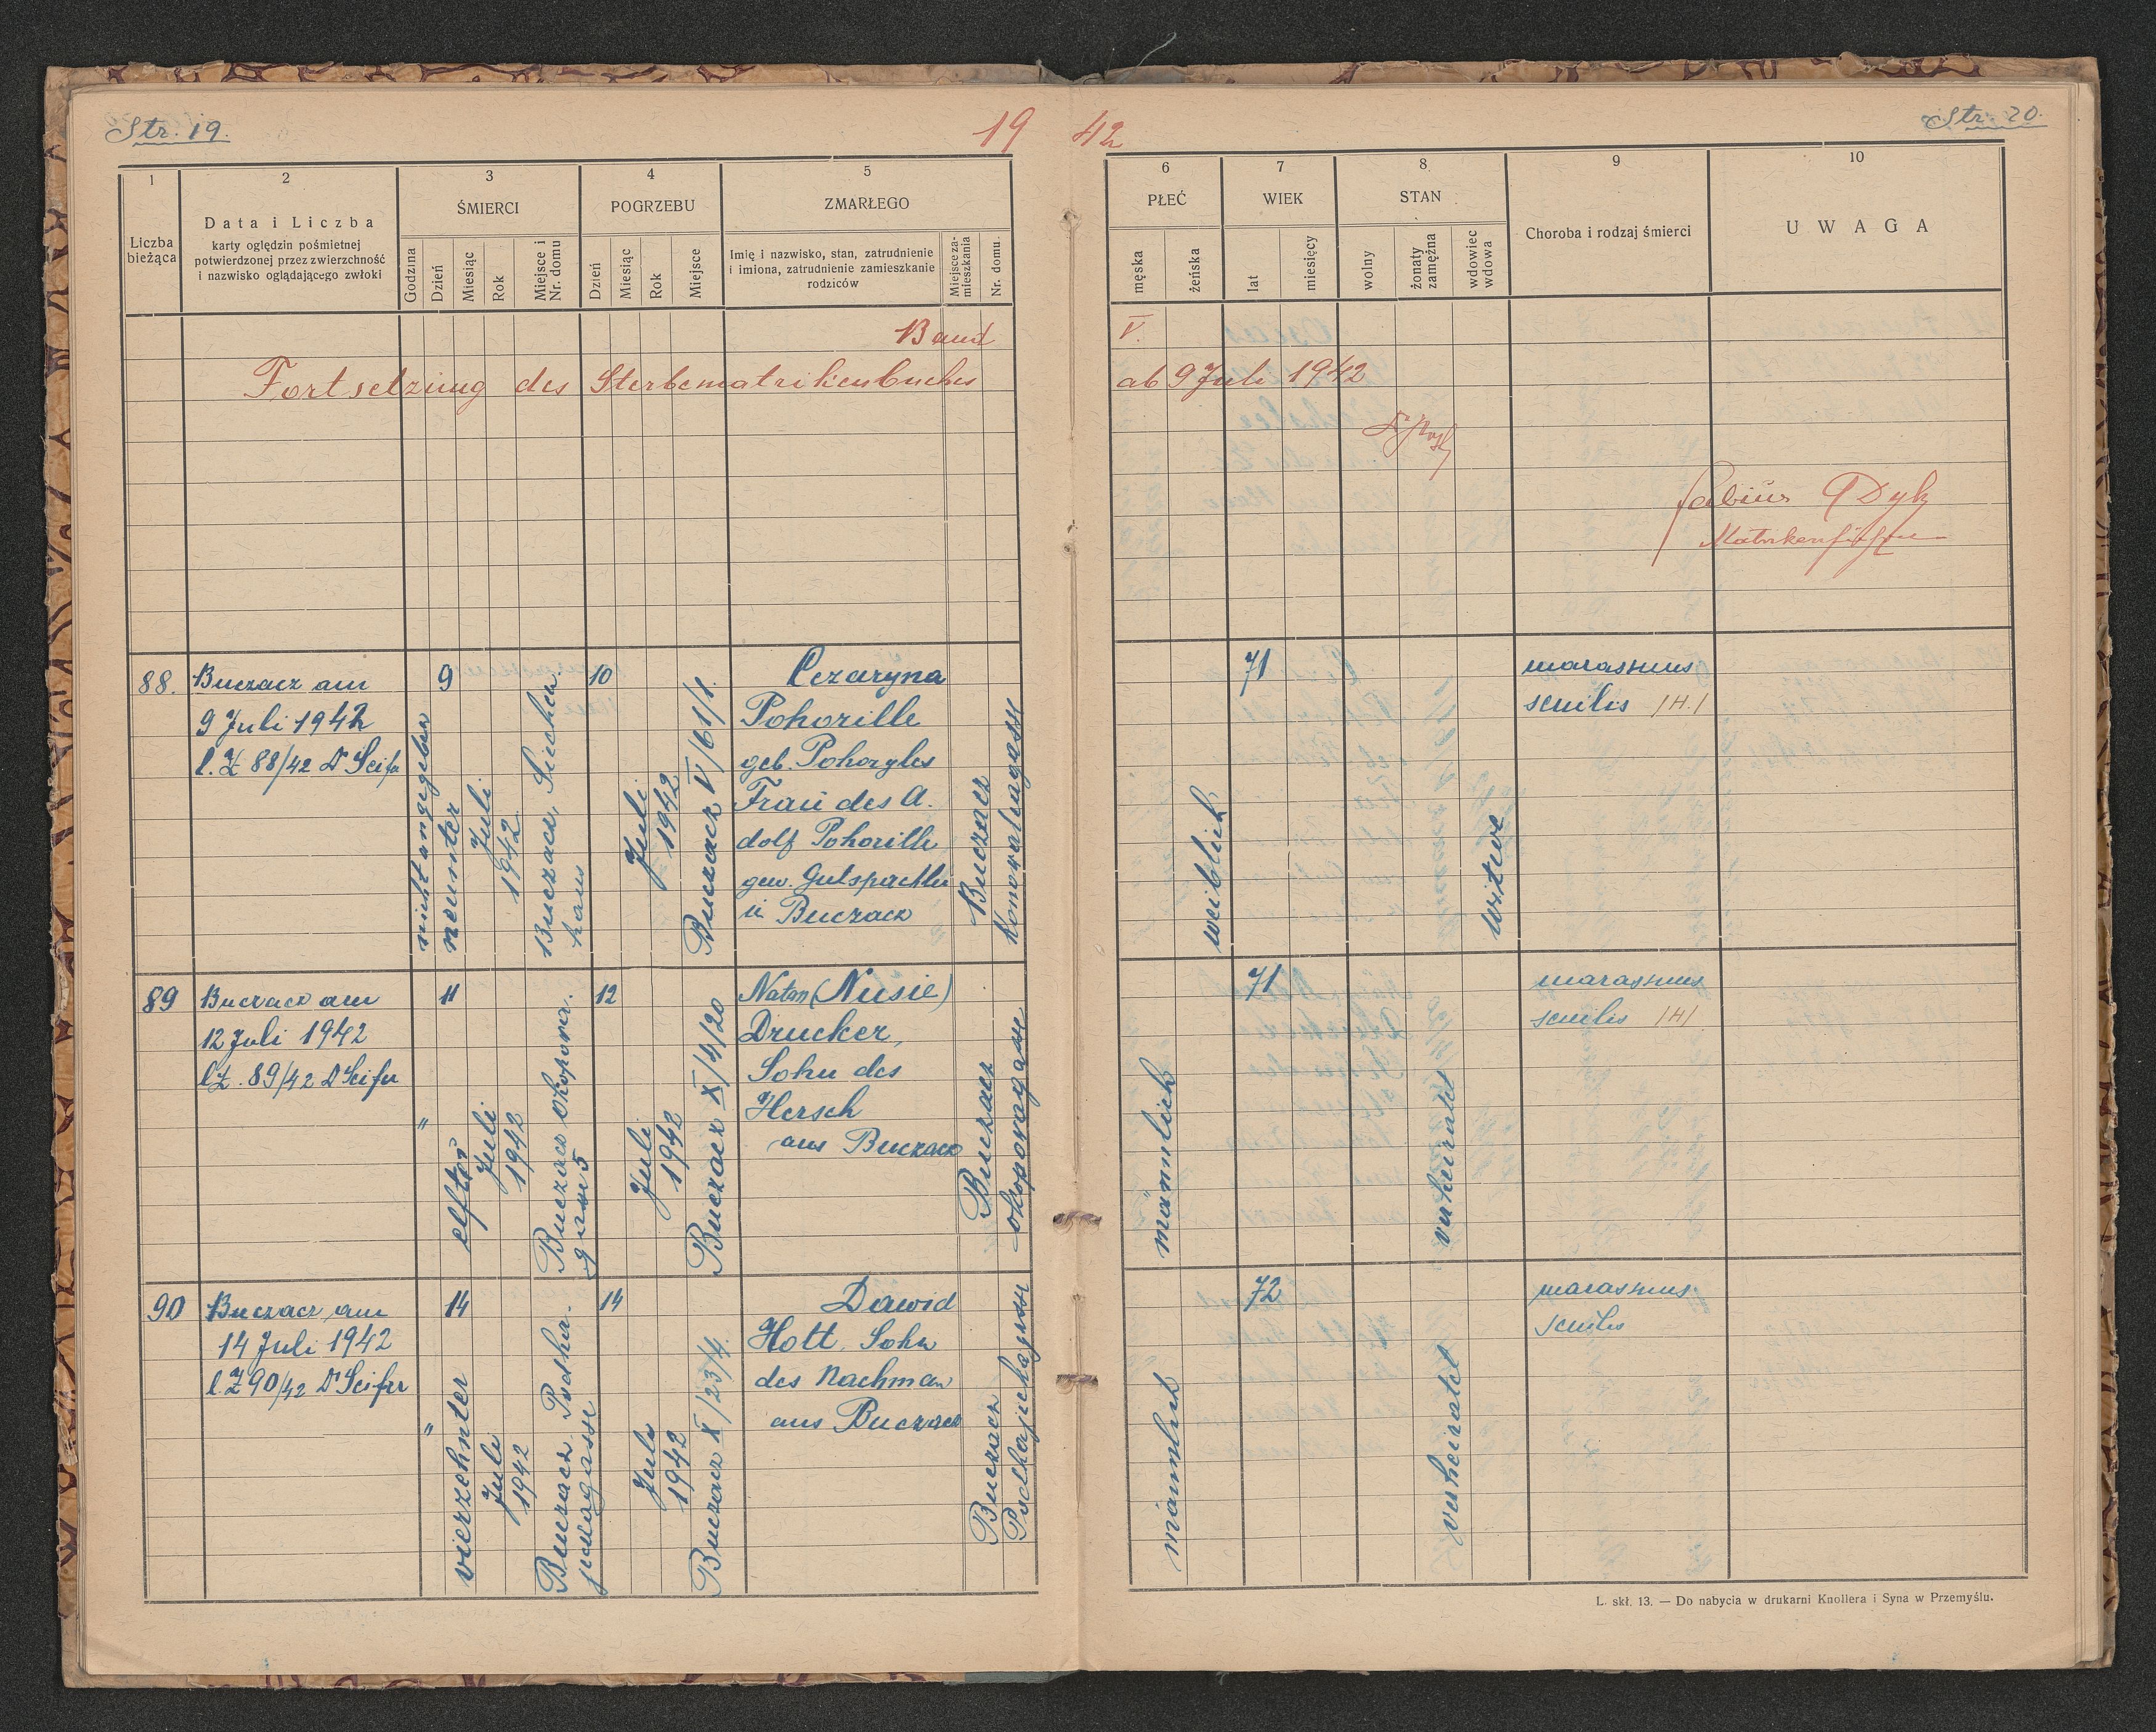 Str. 19.
19 42
Str. 20.
1
2
3
4
5
6
7
8
9
10
Liczba
bieżąca
Data i Liczba
karty oględzin pośmietnej
potwierdzonej przez zwierzchność
i nazwisko oglądającego zwłoki
ŚMIERCI
Godzina
Dzień
Miesiąc
Rok
Miejsce i
Nr. domu
POGRZEBU
Dzień
Miesiąc
Rok
Miejsce
ZMARŁEGO
Imię i nazwisko, stan, zatrudnienie
i imiona, zatrudnienie zamieszkanie
rodziców
Miejsce za-
mieszkania
Nr. domu.
PŁEĆ
męska
żeńska
WIEK
lat
miesięcy
STAN
wolny
żonaty
zamężna
wdowiec
wdowa
Choroba i rodzaj śmierci
UWAGA
Band V.
Fortsetzung des Sterbematrikenbuches ab 9 Juli 1942
Fabius Dyk
Matrikenführer
88.
Buczacz am
9 Juli 1942
l. Z 88/42 Dr Seifer
nicht angegeben
9
neunter
Juli
1942
Buczacz, Siechen-
haus
10
Juli
1942
Buczacz V/61/1.
Cezaryna
Pohorille
geb. Pohoryles
Frau des A.
dolf Pohorille
gew. Gutspächter
in Buczacz
Buczacz
weiblich
71
witwe
marasmus
senilis /H./
89
Buczacz am
12 Juli 1942
l.Z. 89/42 Dr Seifer
"
11
elfter
Juli
1942
Buczacz Okopowa-
gasse 5
12
Juli
1942
Buczacz X/4/20
Natan (Nusie)
Drucker,
Sohn des
Hersch
aus Buczacz
Buczacz
okopowagasse
männlich
71
verheiratet
marasmus
senilis /H/
90
Buczacz am
14 Juli 1942
l.Z 90/42 Dr Seifer
"
14
vierzehnter
Juli
1942
Buczacz Podha-
jeckagasse
14
Juli
1942
Buczacz X/23/4.
Dawid
Hott, Sohn
des Nachman
aus Buczacz
Buczacz
Podhajeckagasse
männlich
72
verheiratet
marasmus
senilis
L. skł. 13. — Do nabycia w drukarni Knollera i Syna w Przemyślu.